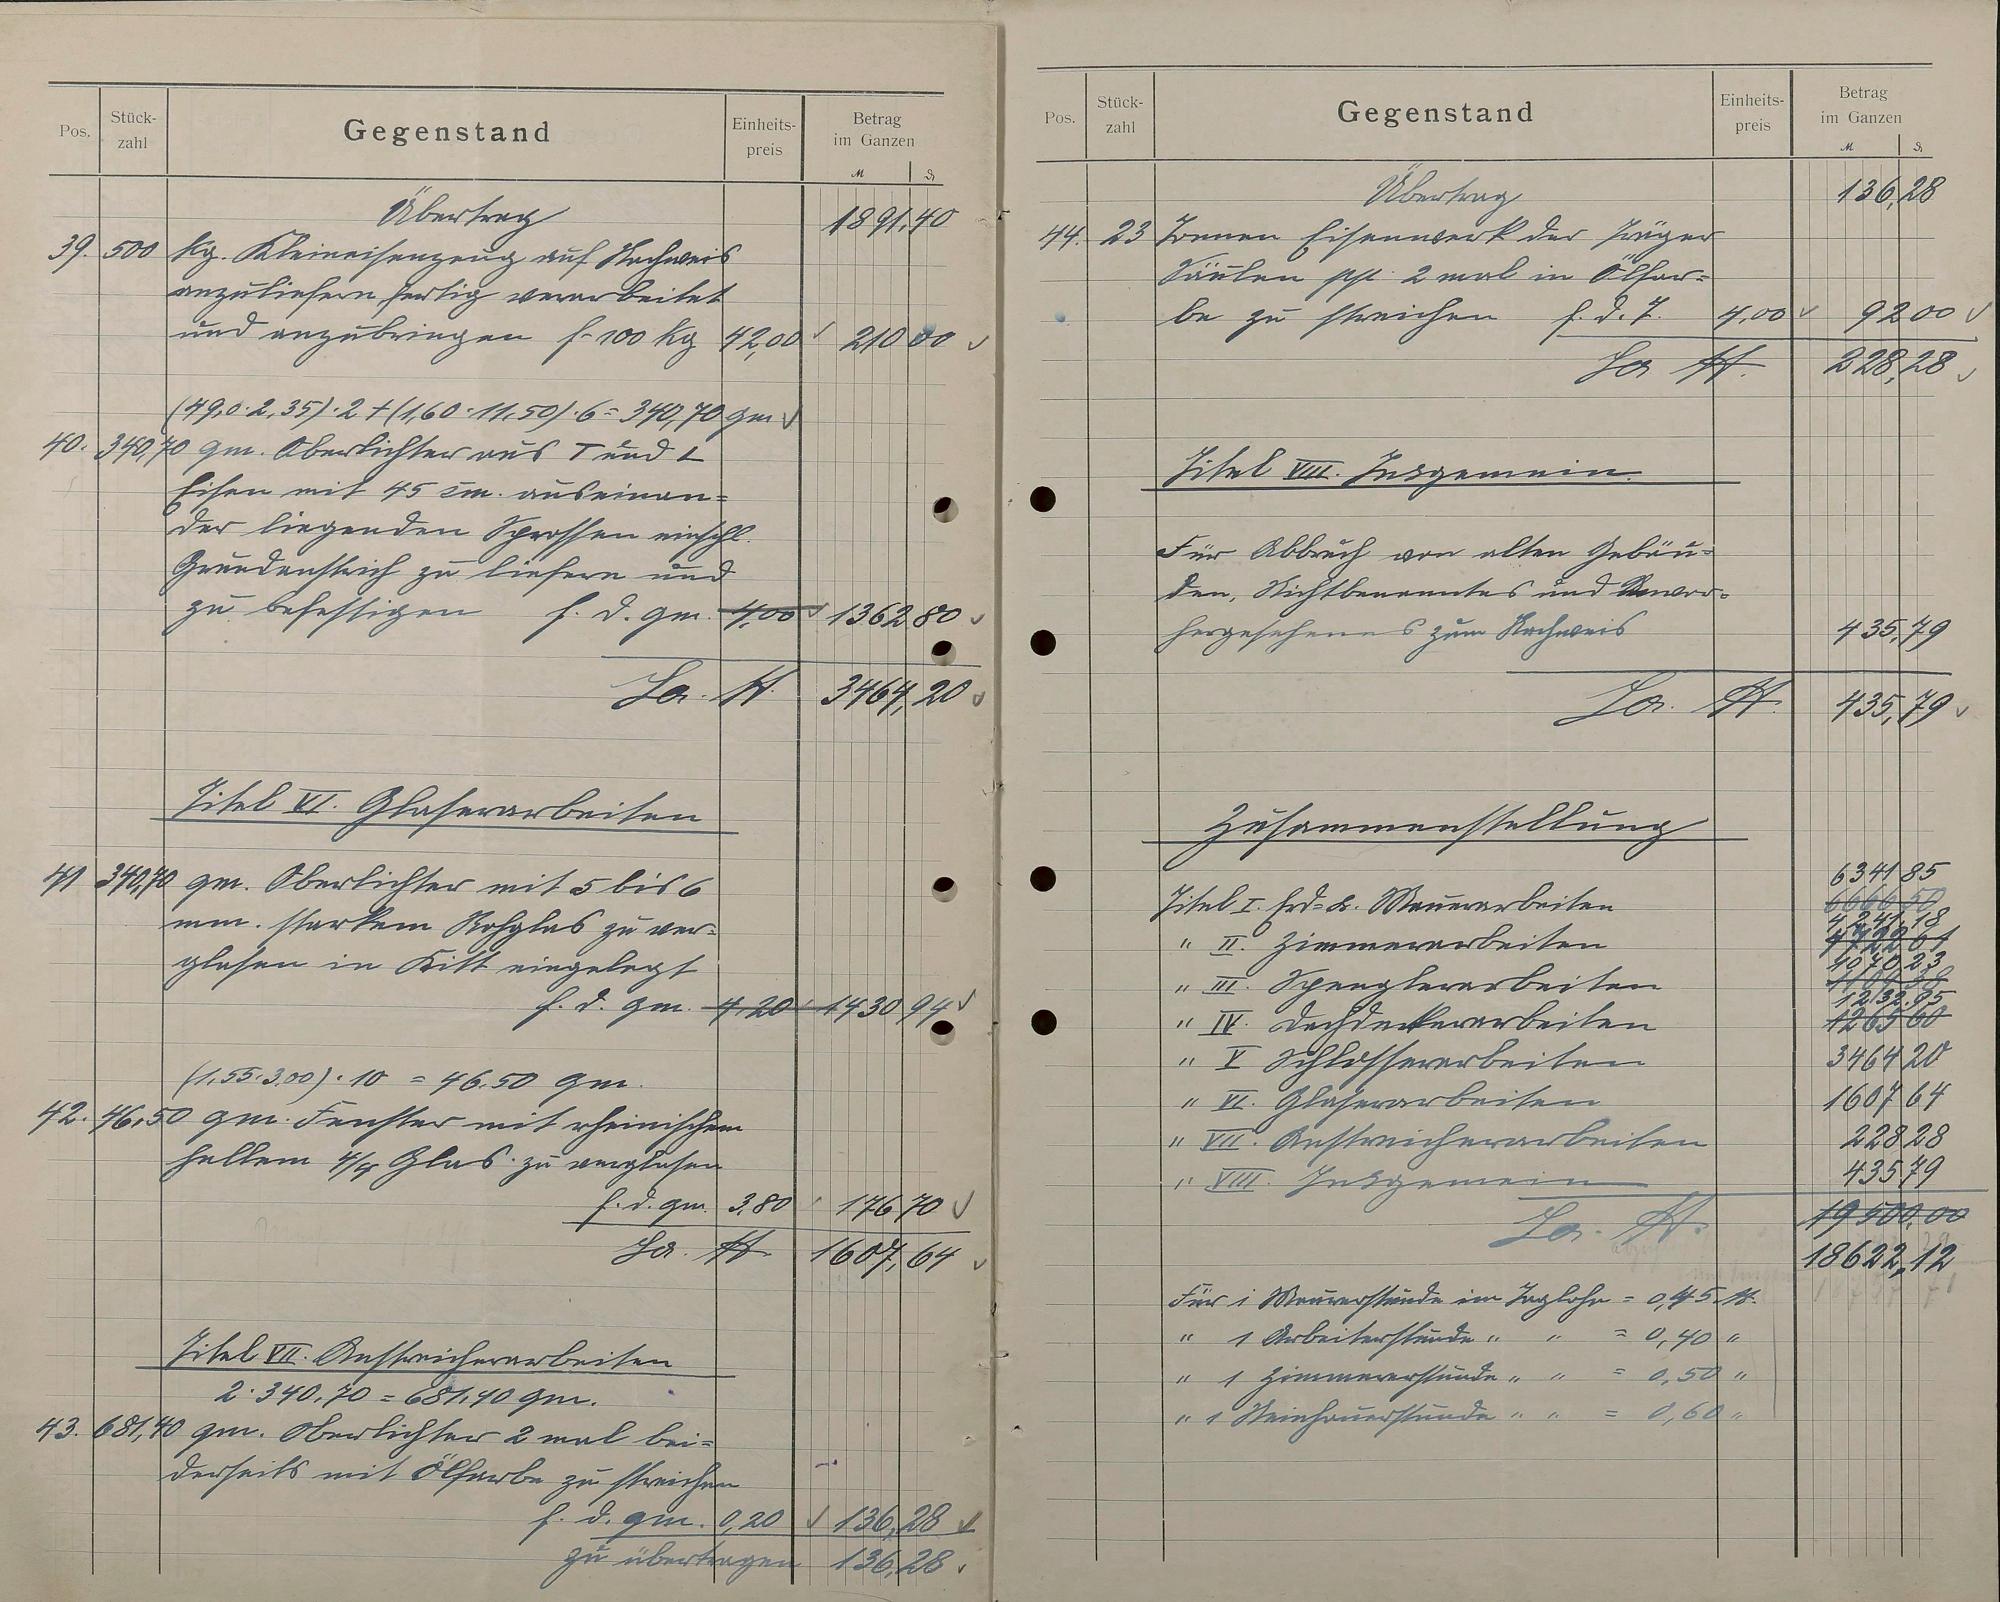 Pos. Stück-zahl Gegenstand Einheits-preis Betrag im Ganzen
M ₰
Übertrag 1891,40
39. 500 kg. Kleineisenzeug auf Nachweis
anzuliefern, fertig verarbeitet
und anzubringen f. 100 kg 42,00 210 00
(49,0·2,35)·2 + (1,60·11,50)·6 = 340,70 qm
40. 340,70 qm. Oberlichter aus T und L
Eisen mit 45 cm. auseinan=
der liegenden Sprossen einschl.
Grundanstrich zu liefern und
zu befestigen f. d. qm. 4,00 1362 80
Sa. M. 3464,20
Titel VI. Glaserarbeiten
41 340,70 qm. Oberlichter mit 5 bis 6
mm. starkem Rohglas zu ver=
glasen in Kitt eingelegt
f. d. qm. 4,20 1430 94
(1,55·3,00)·10 = 46,50 qm.
42. 46,50 qm. Fenster mit rheinischem
hellem 4/4 Glas zu verglasen
f. d. qm. 3,80 176 70
Sa. M. 1607,64
Titel VII. Anstreicherarbeiten
2·340,70 = 681,40 qm.
43. 681,40 qm. Oberlichter 2 mal bei=
derseits mit Ölfarbe zu streichen
f. d. qm. 0,20 136,28
zu übertragen 136,28
Pos. Stück-zahl Gegenstand Einheits-preis Betrag im Ganzen
M ₰
Übertrag 136,28
44. 23 Tonnen Eisenwerk der Träger
Säulen pp. 2 mal in Ölfar=
be zu streichen f. d. T. 4,00 92 00
Sa M. 228,28
Titel VIII. Insgemein.
Für Abbruch von alten Gebäu=
den, Nichtbenanntes und Unvor=
hergesehenes zum Nachweis 435,79
Sa. M. 435,79
Zusammenstellung
6341 85
Titel I. Erd= & Maurerarbeiten 6666 50
4241,18
" II. Zimmerarbeiten 4722 61
1070 23
" III. Spenglerarbeiten 1109 38
1232,95
" IV. Dachdeckerarbeiten 1265 60
" V Schlosserarbeiten 3464 20
" VI. Glaserarbeiten 1607 64
" VII. Anstreicherarbeiten 228 28
" VIII. Insgemein 435 79
Sa. M. 19500,00
18622,12
Für 1 Maurerstunde im Taglohn = 0,45 M.
" 1 Arbeiterstunde " " = 0,40 "
" 1 Zimmererstunde " " = 0,50 "
" 1 Steinhauerstunde " " = 0,60 "